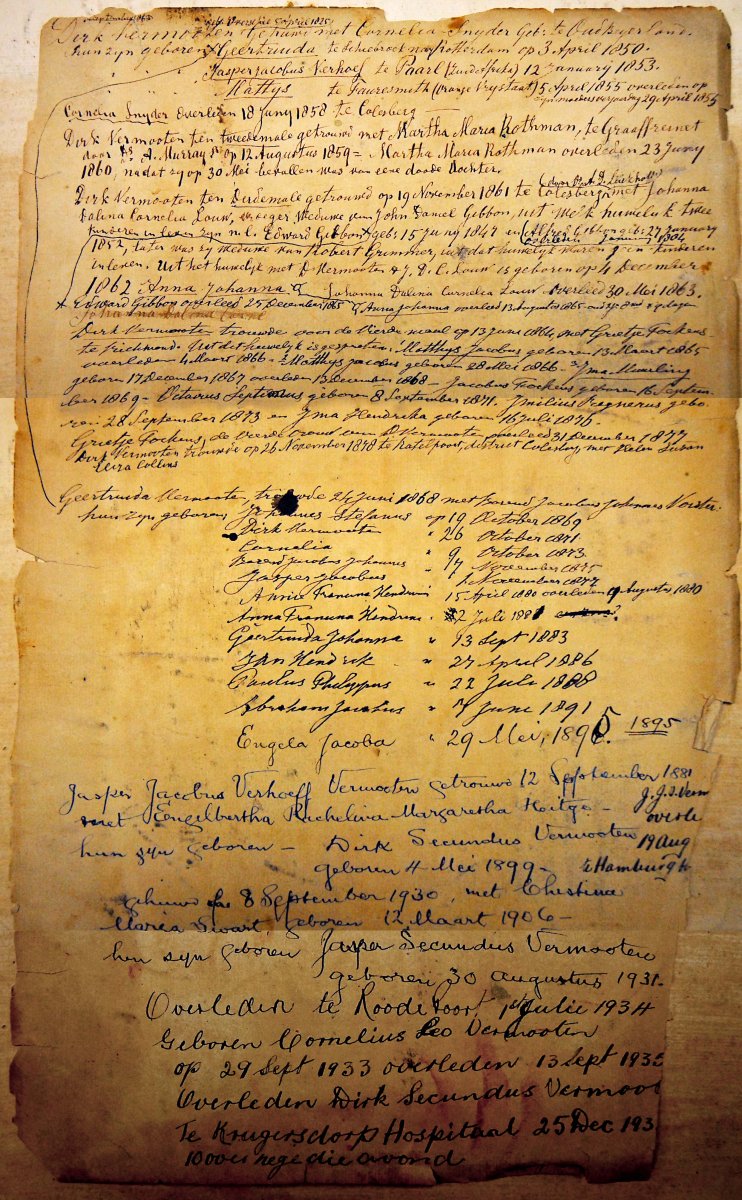 Dirk Vermooten getrouwd met Cornelia Snyder Geb: te Oud Beyerland.
hun zyn geboren Geertruida te Schiebroek nav Rotterdam op 3 April 1850.
Jasper Jacobus Verhoef te Paarl (Zuid Afrika) 12 January 1853.
Mattys te Fauresmith (Oranje Vrystaat) 5 April 1855 overleden op
29 April 1855
Cornelia Snyder Overleden 18 Juny 1858 te Colesberg
Dirk Vermooten ten tweedemale getrouwd met Martha Maria Rothman, te Graaffreinet
door Ds. A. Murray Sr op 12 Augustus 1859 = Martha Maria Rothman overleden 23 Juny
1860, nadat zy op 30 Mei bevallen was van eene doode dochter.
Dirk Vermooten ten Derdemale getrouwd op 19 November 1861 te Colesberg met Johanna
Dalina Cornelia Louw, vroeger Weduwe van John Daniel Gibbon, uit welk huwelijk twee
kinderen in leven zyn nl. Edward Gibbon geb: 15 Juny 1847 en Alfred Gibbon geb: 27 January
1852, later was zy weduwe van Robert Grimmer, uit dat huwelyk waren geen kinderen
in leven. Uit het huwelyk met D. Vermooten & J. D. C. Louw is geboren op 4 December
1862 : Anna Johanna & Johanna Dalina Cornelia Louw Overleed 30 Mei 1863.
x Edward Gibbon overleed 25 December 1865 & Anna Johanna overleed 13 Augustus 1865
Johanna Dalina
Dirk Vermooten trouwde voor de Vierde maal op 13 Juni 1864, met Grietje Fockens
te Richmond. Uit dit huwelyk is gesproten: Matthys Jacobus geboren 13 Maart 1865
overleden 4 Maart 1866 - Matthys Jacobus geboren 28 Mei 1866 -
geboren 17 December 1867 overleden 13 December 1868 - Jacobus Fockens geboren 16 Septem-
ber 1869 - Octavus Septimus geboren 8 September 1871. Imilius Regnerus gebo-
ren 28 September 1873 en Yma Hendrika geboren 16 Juli 1876.
Grietje Fockens, de vierde vrouw van D. Vermooten, overleed 31 December 1877
Dirk Vermooten trouwde op 26 November 1878 te Katel poort, district Colesberg, met Helen Susan
Eliza Collins
Geertruida Vermooten, trouwde 24 Juni 1868 met Barend Jacobus Johannes Vorster.
hun zyn geboren, Johannes Stefanus op 19 October 1869
Dirk Vermooten " 26 October 1871
Cornelia " 9 October 1873
Barend Jacobus Johannes " 17 November 1875
Jasper Jacobus November 1877
Annie Francina Hendrina 15 April 1880 overleden 9 Augustus 1880
Anna Francina Hendrena " 2 Juli 1881
Geertruida Johanna " 13 Sept 1883
Jan Hendrik " 27 April 1886
Paulus Philippus " 22 Juli 1888
Abraham Jacobus " 7 Juni 1891
Engela Jacoba " 29 Mei, 1895. 1895
Jasper Jacobus Verhoeff Vermooten getrouwd 12 September 1881
met Engelbertha Rachelina Margaretha Hertge -
hun zyn geboren - Dirk Secundus Vermooten
geboren 4 Mei 1899 -
J. J. V. Verm
overle
19 Aug
te Hamburg
gehuwd 8 September 1930, met Chestina
Maria Swart, geboren 12 Maart 1906 -
hun zyn geboren Jasper Secundus Vermooten
geboren 30 augustus 1931.
Overleden te Roodepoort 1st Julie 1934
Geboren Cornelius Leo Vermooten
op 29 Sept 1933 overleden 13 Sept 1935
Overleden Dirk Secundus Vermoot
Te Krugersdorp Hospitaal 25 Dec 193
10 oor nege die avond